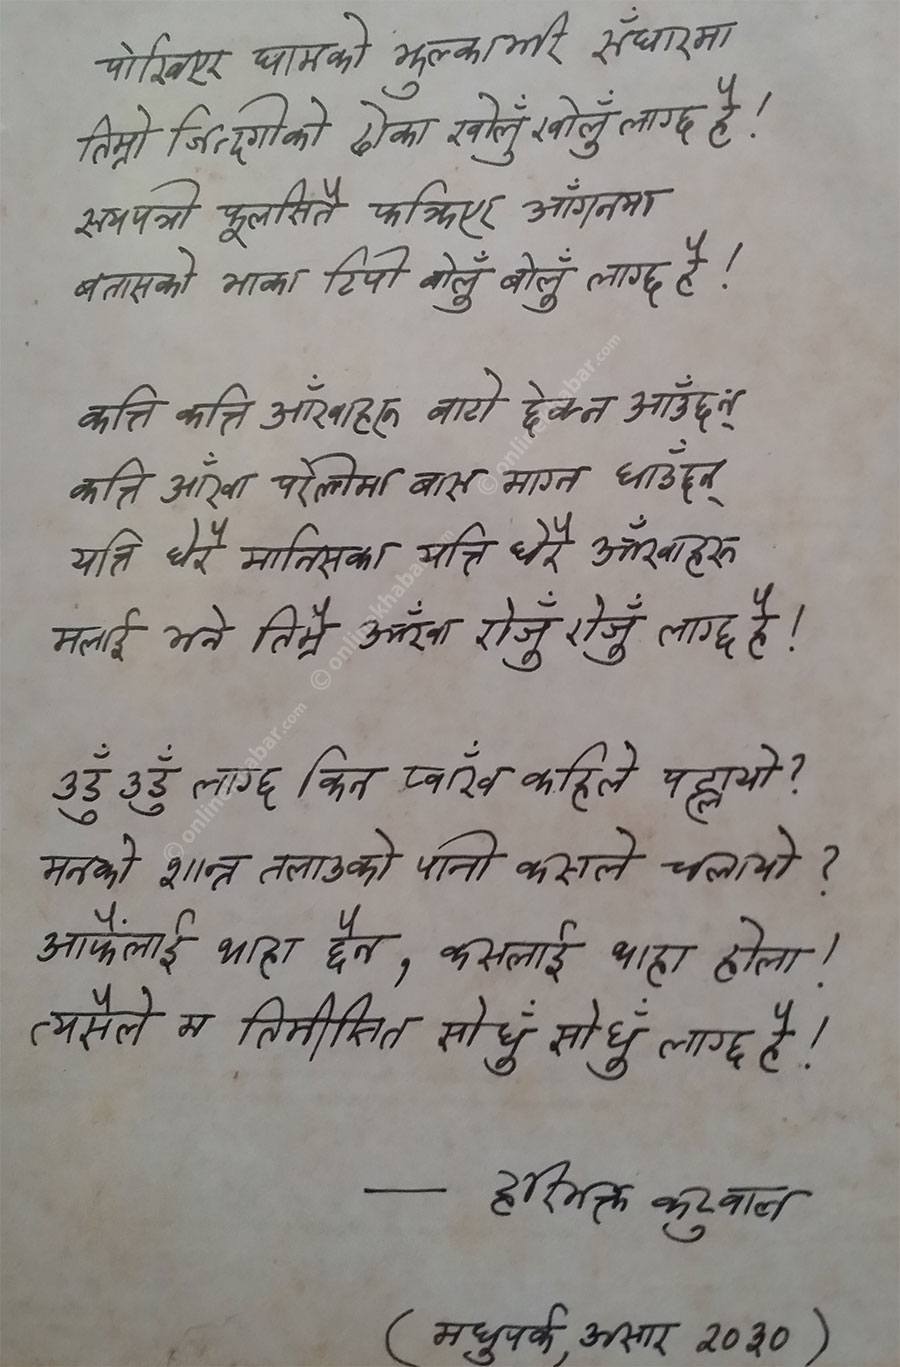 पोखिएर घामको झुल्काभरि सँघारमा
तिम्रो जिन्दगीको ढोका खोलुँ खोलुँ लाग्छ है!
सयपत्री फूलसितै फक्रिएर आँगनमा
बतासको भाका टिपी बोलुँ बोलुँ लाग्छ है!
कत्ति कत्ति आँखाहरू बाटो छेक्न आउँछन्
कत्ति आँखा परेलीमा बास माग्न धाउँछन्
यत्ति धेरै मानिसका यत्ति धेरै आँखाहरू
मलाई भने तिम्रै आँखा रोजुँ रोजुँ लाग्छ है!
उडुँ उडुँ लाग्छ किन प्वाँख कहिले पह्लायो?
मनको शान्त तलाउको पानी कसले चलायो?
आफैंलाई थाहा छैन, कसलाई थाहा होला!
त्यसैले म तिमीसित सोधुँ सोधुँ लाग्छ है!
— हरिभक्त कटुवाल
(मधुपर्क, असार २०३०)
© onlinekhabar.com
© onlinekhabar.com
© onlinekhabar.com